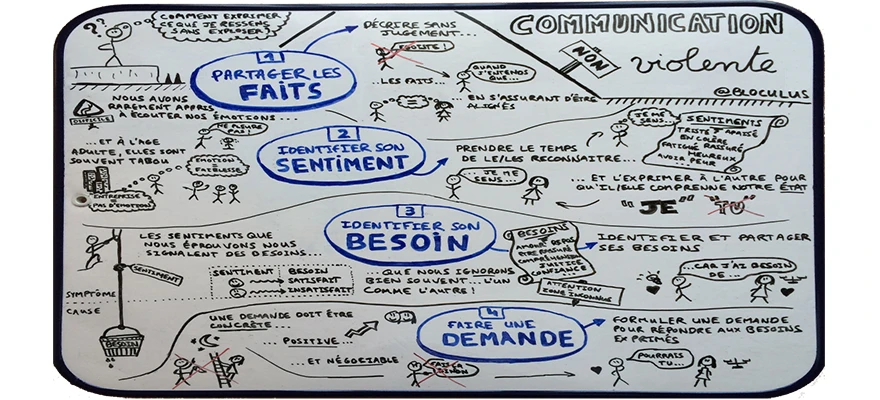 COMMUNICATION
NON
violente
@BLOCULUS
COMMENT EXPRIMER
CE QUE JE RESSENS
SANS EXPLOSER?
1
PARTAGER LES
FAITS
DÉCRIRE SANS
JUGEMENT...
EGOÏSTE!
...LES FAITS...
QUAND
J'ENTENDS
QUE...
... EN S'ASSURANT D'ÊTRE
ALIGNÉS
NOUS AVONS
RAREMENT APPRIS
À ÉCOUTER NOS ÉMOTIONS...
DIFFICILE
NE PLEURE
PAS!
...ET À L'ÂGE
ADULTE, ELLES SONT
SOUVENT TABOU
EMOTION
=
FAIBLESSE
ENTREPRISE
=
PAS D'ÉMOTIONS
2
IDENTIFIER SON
SENTIMENT
PRENDRE LE TEMPS
DE LE/LES RECONNAITRE...
JE ME
SENS...
SENTIMENTS
TRISTE APAISÉ
EN COLÈRE
FATIGUÉ RASSURÉ
HEUREUX
AVOIR PEUR
... JE ME
SENS...
... ET L'EXPRIMER À L'AUTRE POUR
QU'IL/ELLE COMPRENNE NOTRE ÉTAT
"JE" "TU"
3
IDENTIFIER SON
BESOIN
LES SENTIMENTS QUE
NOUS ÉPROUVONS NOUS
SIGNALENT DES BESOINS...
SENTIMENT
SYMPTÔME
CAUSE
BESOIN
SENTIMENT BESOIN
SATISFAIT
INSATISFAIT
...QUE NOUS IGNORONS
BIEN SOUVENT... L'UN
COMME L'AUTRE!
BESOINS
AMOUR REPOS
ÊTRE RASSURÉ
COMPRÉHENSION
JUSTICE
CONFIANCE
...
ATTENTION
ZONE INCONNUE
IDENTIFIER ET PARTAGER
SES BESOINS
...CAR J'AI BESOIN
DE ...
4
FAIRE UNE
DEMANDE
UNE DEMANDE DOIT ÊTRE
CONCRÈTE...
... POSITIVE...
... ET NÉGOCIABLE
SINON
FORMULER UNE DEMANDE
POUR RÉPONDRE AUX BESOINS
EXPRIMÉS
POURRAIS
TU...